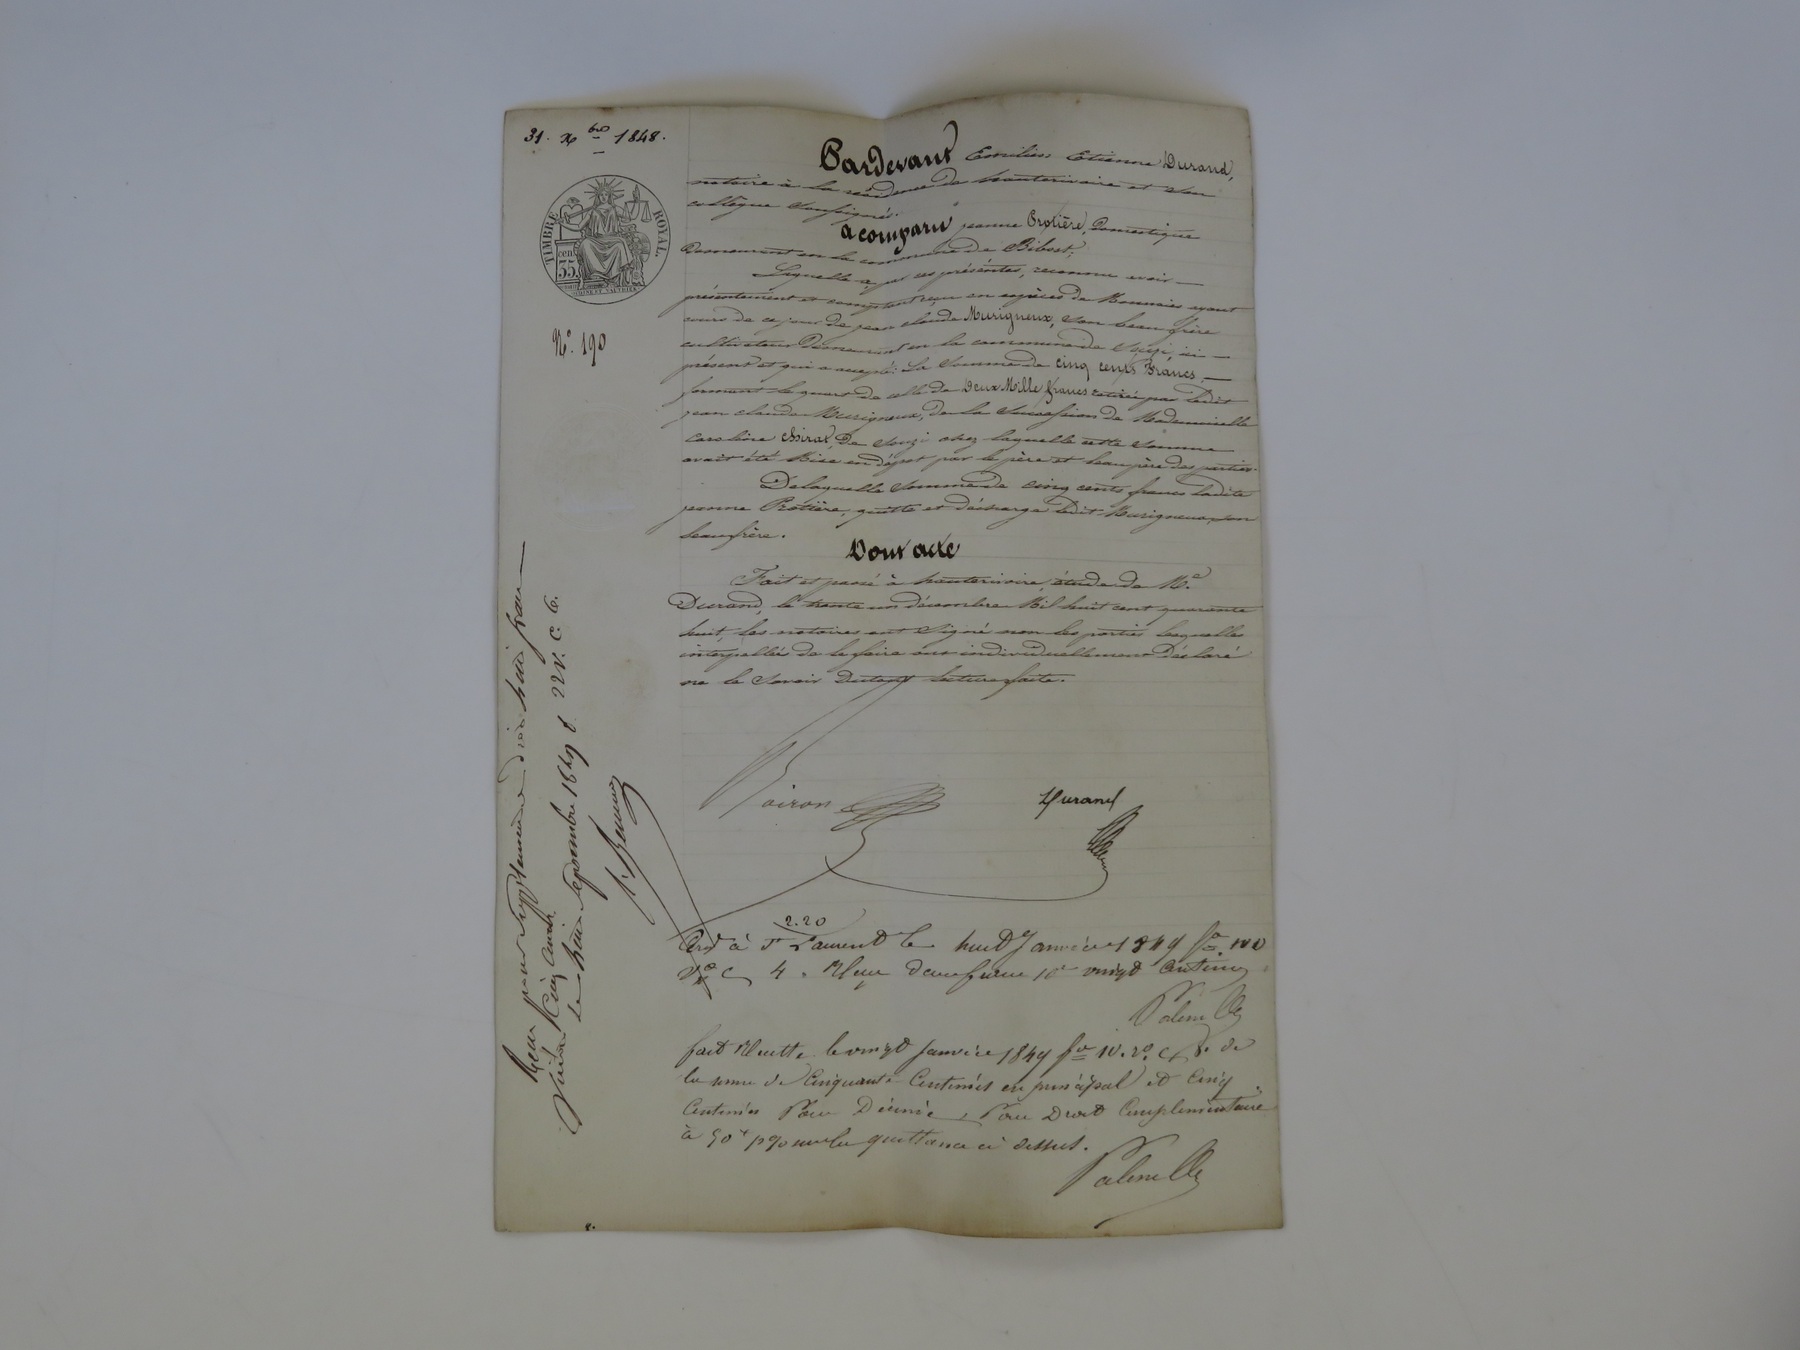 31. Xbre 1848.
TIMBRE ROYAL.
cen. 35.
N.º 190
Pardevant Emilien Etienne Durand,
notaire à la résidence de hauterivoire et son
collègue soussignés.
a comparu jeanne Protière, Domestique
Demeurant en la commune de Bibost,
Laquelle a par ces présentes, reconnu avoir
présentement et comptant reçu en espèces de Monnaies ayant
cours de ce jour de jean claude Murigneux, son beau frère
cultivateur Demeurant en la commune de Souzi, ici
présent et qui a accepté: La Somme de cinq cents Francs,
formant le quart de celle de Deux Mille francs retirée par ledit
jean claude Murigneux, de la Succession de Mademoiselle
caroline chirat, de Souzi chez laquelle cette Somme
avait été Mise en dépot par le père et beau père des parties.
De laquelle Somme de cinq cents francs ladite
jeanne Protière, quitte et décharge ledit Murigneux son
beau frère.
Dont acte
Fait et passé à hauterivoire, étude de Me
Durand, le trente un décembre Mil huit cent quarante
huit, les notaires ont Signé non les parties lesquelles
interpellées de le faire ont individuellement Déclaré
ne le Savoir lecture faite.
Voiron Durand
2.20
à St Laurent le huit Janvier 1849 fo 100
Vo C 4. Reçu deux francs vingt Centimes
Palem
fait Recette le vingt Janvier 1849 fo 10. Vo. C 8. de
la somme de Cinquante Centimes en principal et Cinq
Centimes Pour Décime, Pour Droit Complémentaire
à 50 sur la quittance ci dessus.
Palem
Reçu pour Supplément droit huit francs
Cinq Cent.
le huit Septembre 1849 f. 22 V. C. 6.